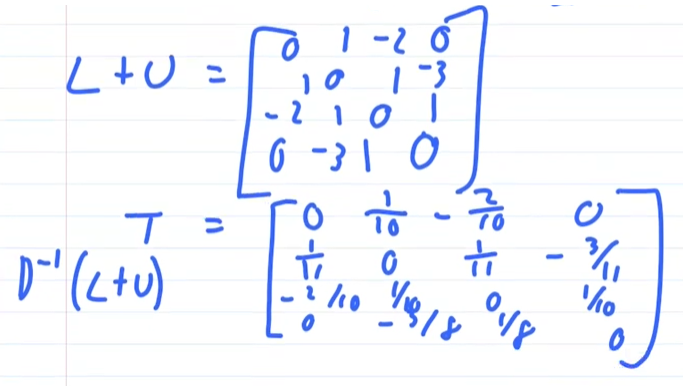 L + U = [ 0 1 -2 0
1 0 1 -3
-2 1 0 1
0 -3 1 0 ]
T = [ 0 1/10 -2/10 0
D⁻¹(L+U) 1/11 0 1/11 -3/11
-2/10 1/10 0 1/10
0 -3/8 1/8 0 ]